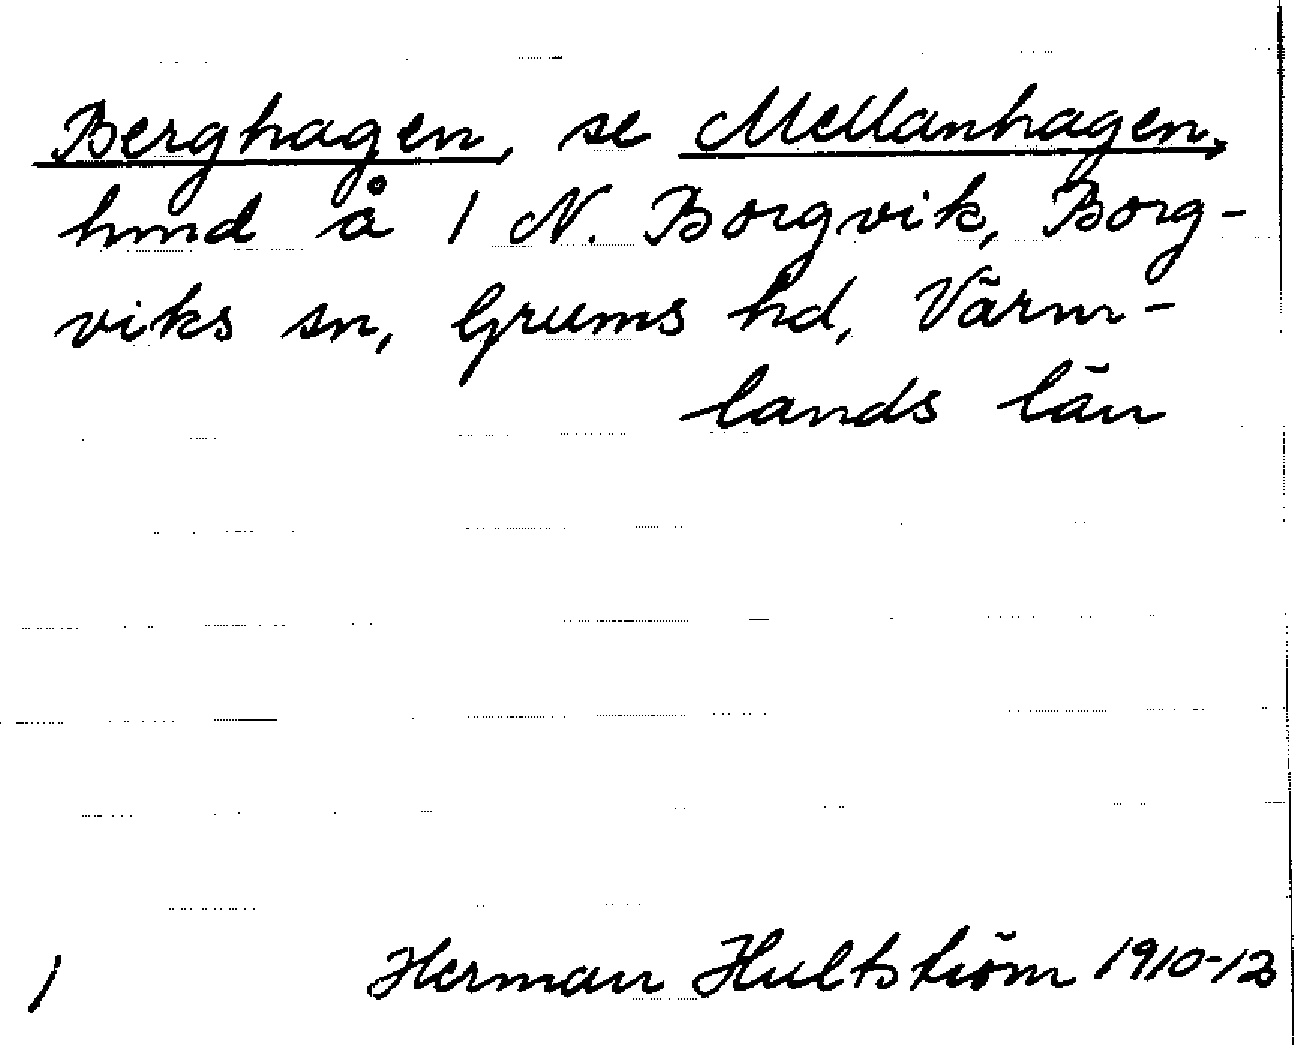 Berghagen, se Mellanhagen,
hmd å 1 N. Borgvik, Borg-
viks sn, Grums hd, Värm-
lands län
1 Herman Hultström 1910-12